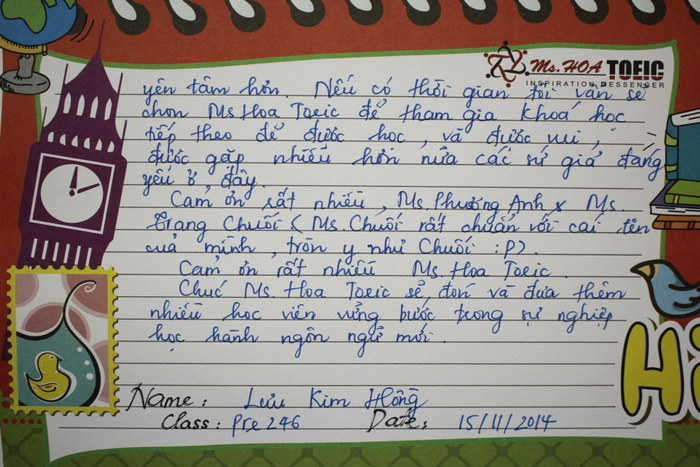 Ms. HOA TOEIC
INSPIRATION MESSENGER
yên tâm hơn. Nếu có thời gian tôi vẫn sẽ
chọn Ms Hoa Toeic để tham gia khoá học
tiếp theo để được học, và được vui,
được gặp nhiều hơn nữa các sứ giả đáng
yêu ở đây.
Cảm ơn rất nhiều, Ms Phương Anh & Ms.
Trang Chuối ( Ms. Chuối rất chuẩn với cái tên
của mình, tròn y như Chuối :P)
Cảm ơn rất nhiều Ms. Hoa Toeic.
Chúc Ms. Hoa Toeic sẽ đón và đưa thêm
nhiều học viên vững bước trong sự nghiệp
học hành ngôn ngữ mới.
Name: Lưu Kim Hồng
Class: Pre 246 Date: 15/11/2014